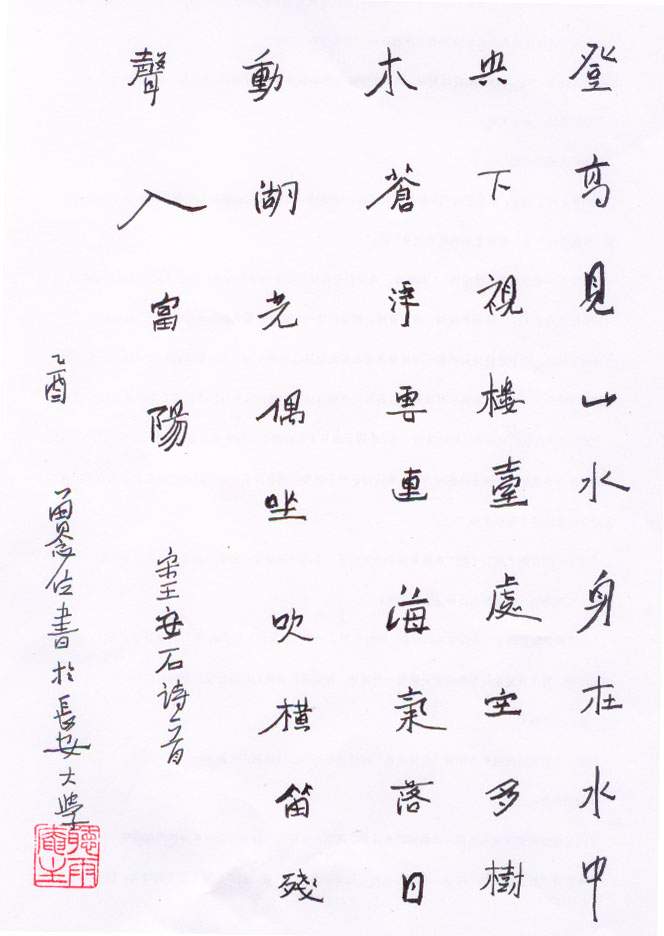 登高見山水身在水中
央下視樓臺處空多樹
木蒼浮雲連海氣落日
動湖光偶坐吹橫笛殘
聲入富陽 宋王安石詩一首
乙酉 書於長安大學
聽雨